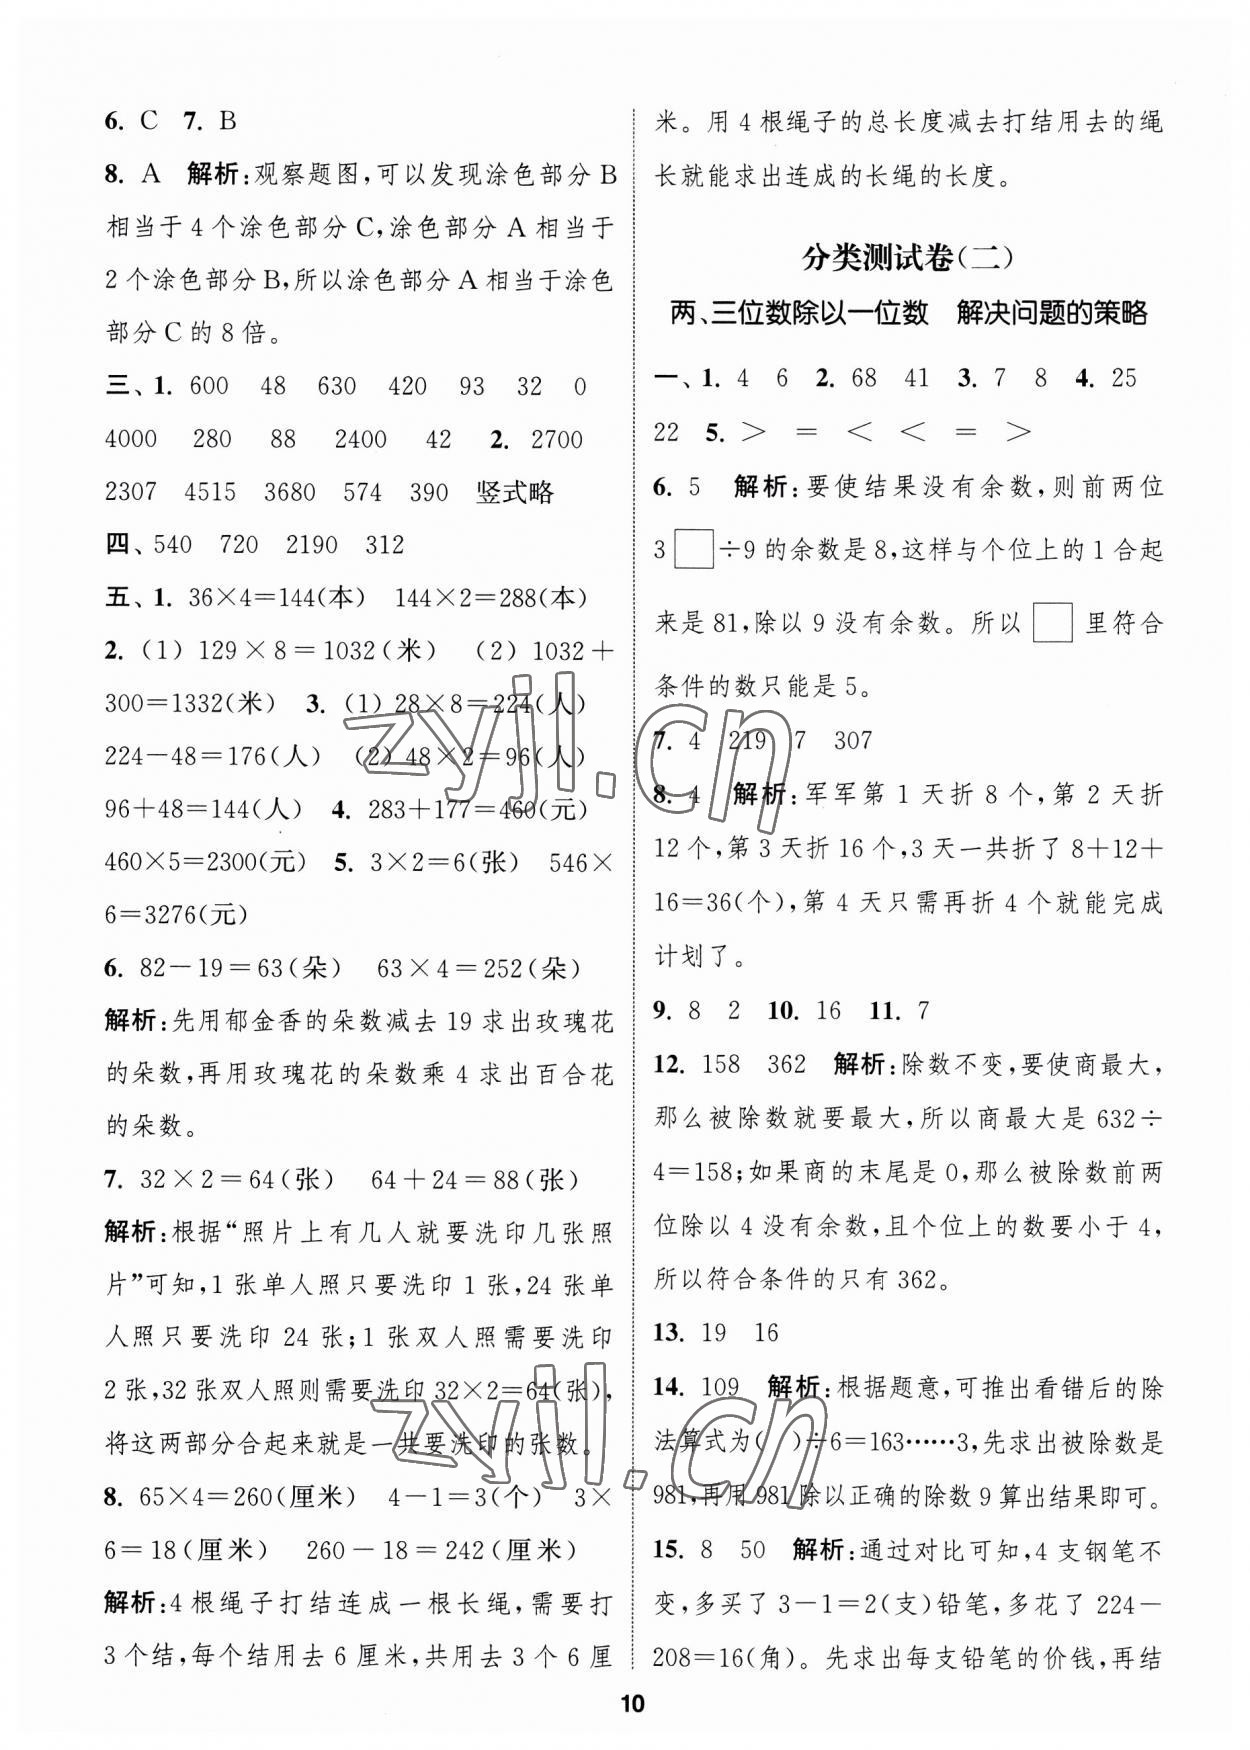 6. C 7. B
8. A 解析:观察题图,可以发现涂色部分 B
相当于 4 个涂色部分 C,涂色部分 A 相当于
2 个涂色部分 B,所以涂色部分 A 相当于涂色
部分 C 的 8 倍。
三、1. 600 48 630 420 93 32 0
4000 280 88 2400 42 2. 2700
2307 4515 3680 574 390 竖式略
四、540 720 2190 312
五、1. 36×4=144(本) 144×2=288(本)
2. (1) 129×8=1032(米) (2) 1032+
300=1332(米) 3. (1) 28×8=224(人)
224-48=176(人) (2) 48×2=96(人)
96+48=144(人) 4. 283+177=460(元)
460×5=2300(元) 5. 3×2=6(张) 546×
6=3276(元)
6. 82-19=63(朵) 63×4=252(朵)
解析:先用郁金香的朵数减去 19 求出玫瑰花
的朵数,再用玫瑰花的朵数乘 4 求出百合花
的朵数。
7. 32×2=64(张) 64+24=88(张)
解析:根据“照片上有几人就要洗印几张照
片”可知,1 张单人照只要洗印 1 张,24 张单
人照只要洗印 24 张;1 张双人照需要洗印
2 张,32 张双人照则需要洗印 32×2=64(张),
将这两部分合起来就是一共要洗印的张数。
8. 65×4=260(厘米) 4-1=3(个) 3×
6=18(厘米) 260-18=242(厘米)
解析:4 根绳子打结连成一根长绳,需要打
3 个结,每个结用去 6 厘米,共用去 3 个 6 厘
米。用 4 根绳子的总长度减去打结用去的绳
长就能求出连成的长绳的长度。
分类测试卷(二)
两、三位数除以一位数 解决问题的策略
一、1. 4 6 2. 68 41 3. 7 8 4. 25
22 5. > = < < = >
6. 5 解析:要使结果没有余数,则前两位
3□÷9 的余数是 8,这样与个位上的 1 合起
来是 81,除以 9 没有余数。所以□里符合
条件的数只能是 5。
7. 4 219 7 307
8. 4 解析:军军第 1 天折 8 个,第 2 天折
12 个,第 3 天折 16 个,3 天一共折了 8+12+
16=36(个),第 4 天只需再折 4 个就能完成
计划了。
9. 8 2 10. 16 11. 7
12. 158 362 解析:除数不变,要使商最大,
那么被除数就要最大,所以商最大是 632÷
4=158;如果商的末尾是 0,那么被除数前两
位除以 4 没有余数,且个位上的数要小于 4,
所以符合条件的只有 362。
13. 19 16
14. 109 解析:根据题意,可推出看错后的除
法算式为( )÷6=163……3,先求出被除数是
981,再用 981 除以正确的除数 9 算出结果即可。
15. 8 50 解析:通过对比可知,4 支钢笔不
变,多买了 3-1=2(支)铅笔,多花了 224-
208=16(角)。先求出每支铅笔的价钱,再结
10
zyjl.cn
zyjl.cn